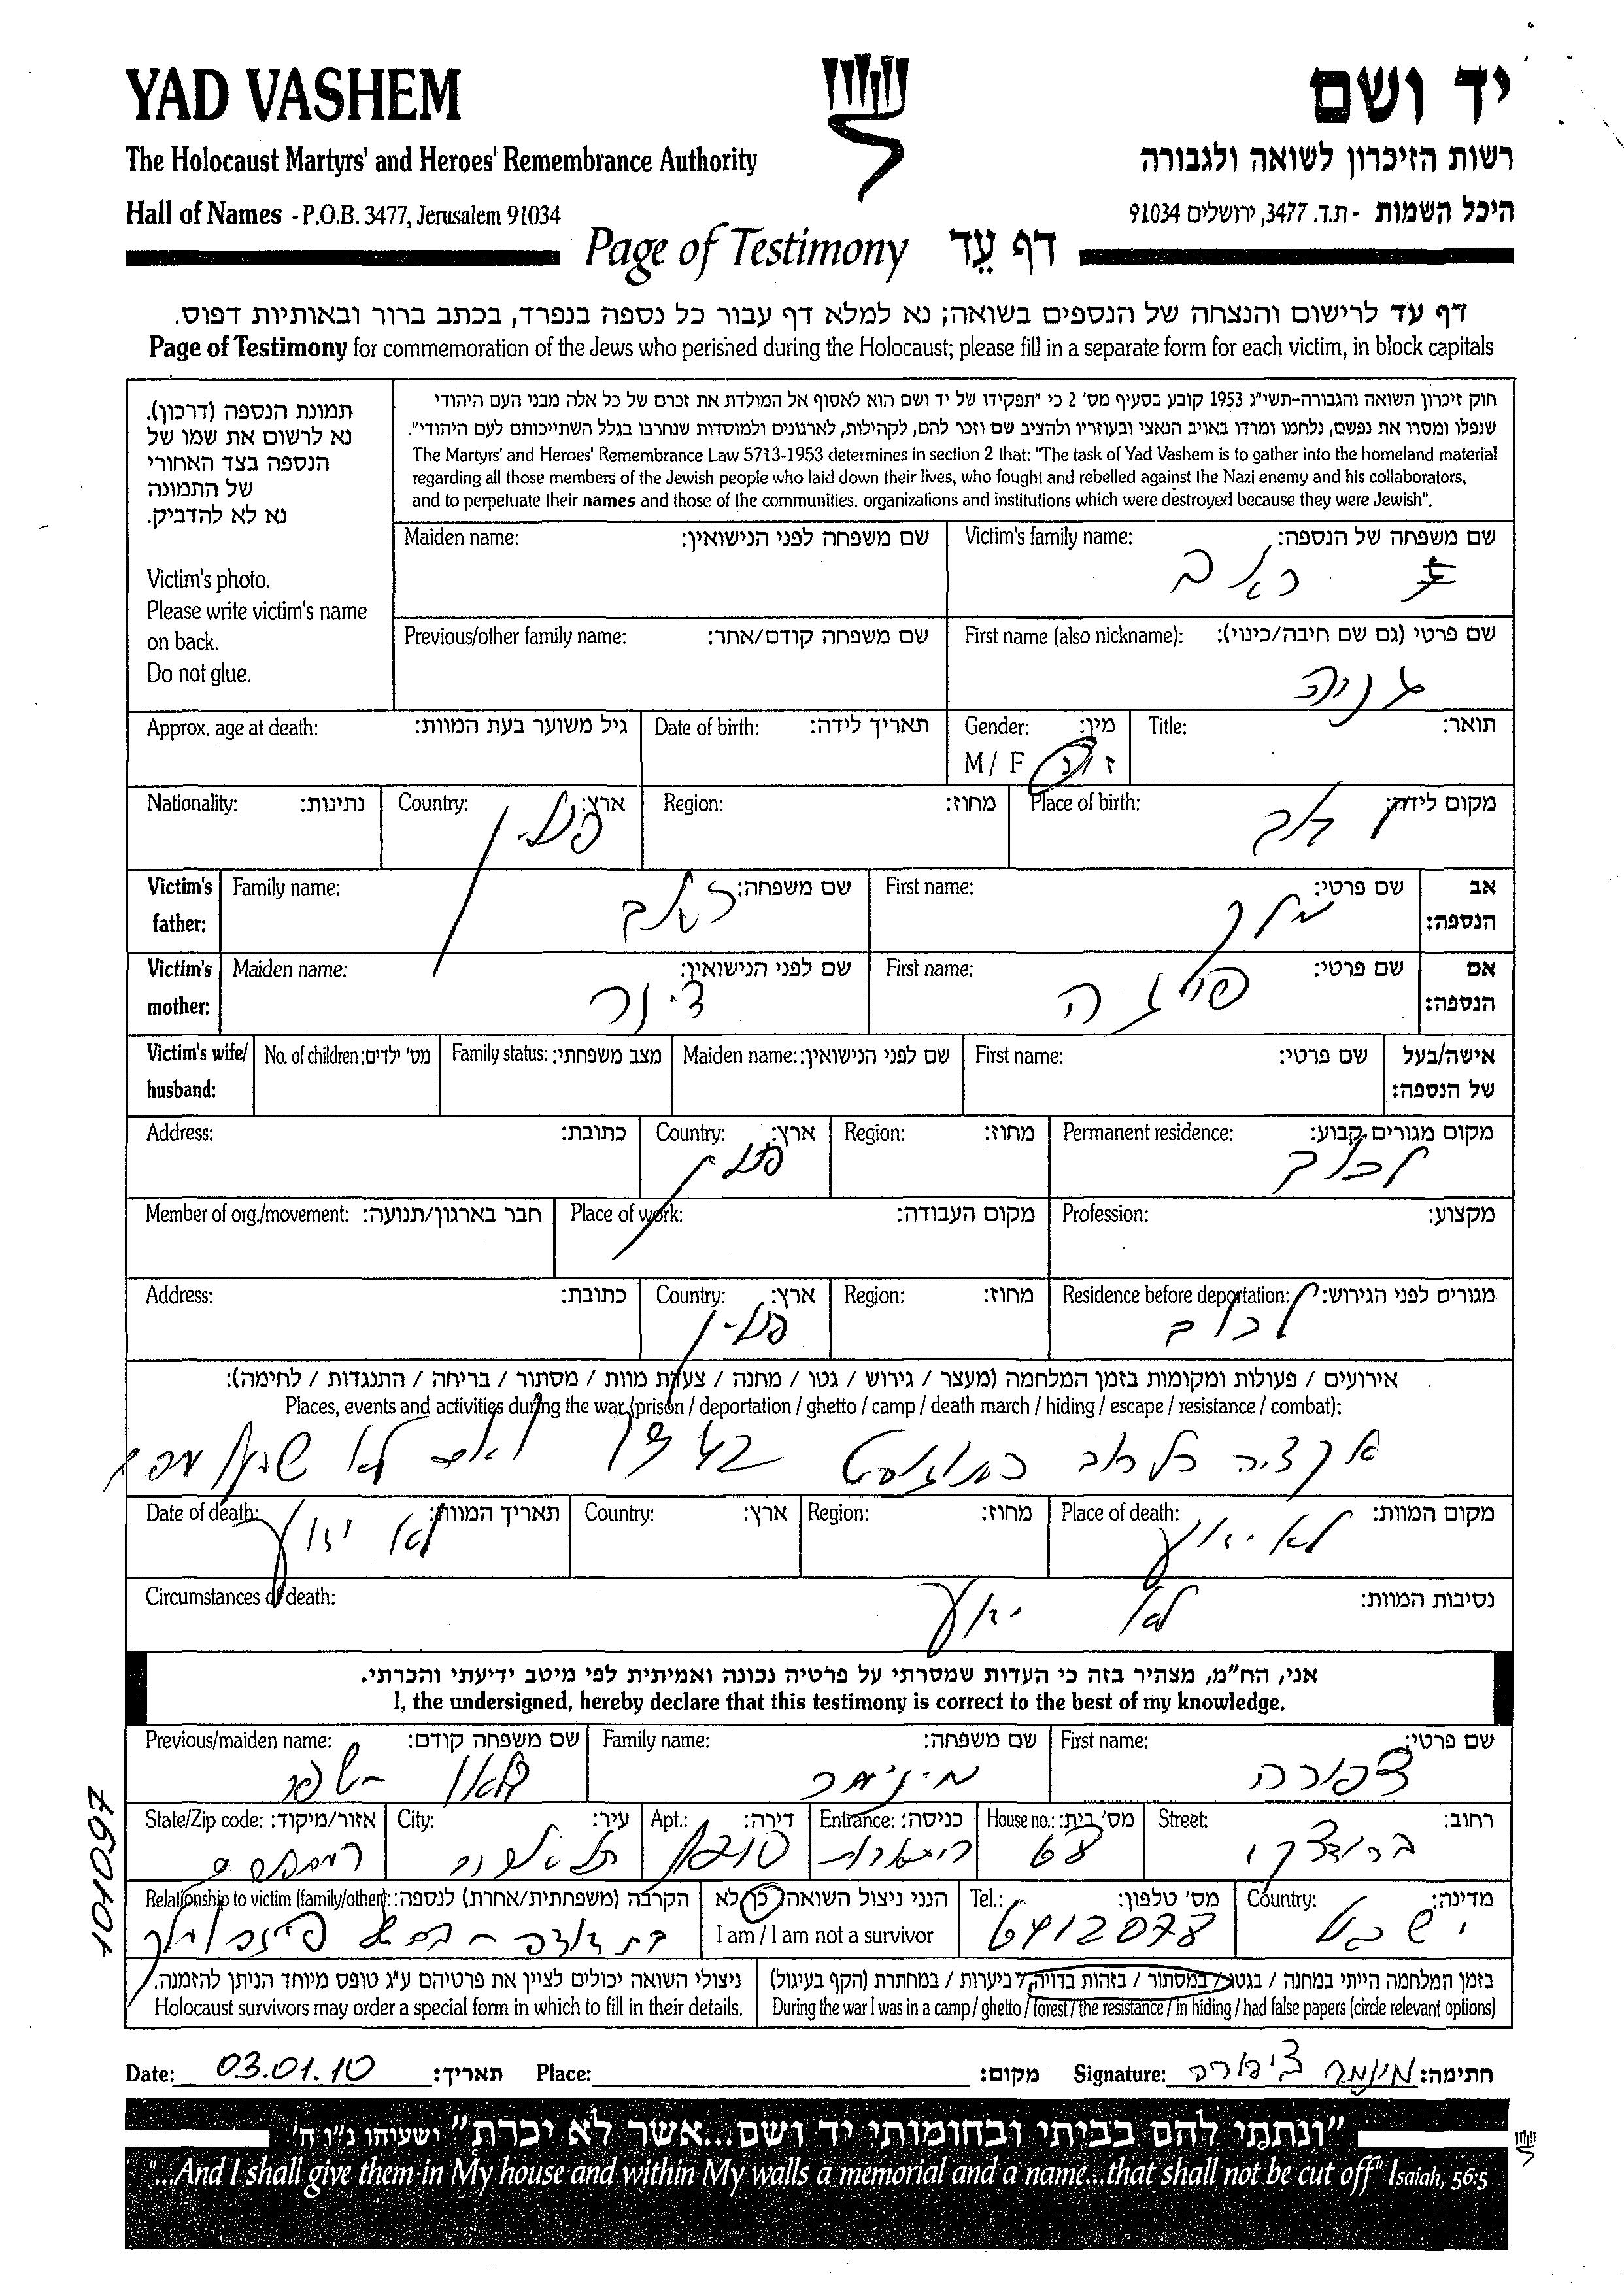 YAD VASHEM
יד ושם
The Holocaust Martyrs' and Heroes' Remembrance Authority
רשות הזיכרון לשואה ולגבורה
Hall of Names - P.O.B. 3477, Jerusalem 91034
היכל השמות - ת.ד. 3477, ירושלים 91034
Page of Testimony דף עֵד
דף עד לרישום והנצחה של הנספים בשואה; נא למלא דף עבור כל נספה בנפרד, בכתב ברור ובאותיות דפוס.
Page of Testimony for commemoration of the Jews who perished during the Holocaust; please fill in a separate form for each victim, in block capitals
תמונת הנספה (דרכון).
נא לרשום את שמו של
הנספה בצד האחורי
של התמונה
נא לא להדביק.
Victim's photo.
Please write victim's name
on back.
Do not glue.
חוק זיכרון השואה והגבורה-תשי"ג 1953 קובע בסעיף מס' 2 כי "תפקידו של יד ושם הוא לאסוף אל המולדת את זכרם של כל אלה מבני העם היהודי
שנפלו ומסרו את נפשם, נלחמו ומרדו באויב הנאצי ובעוזריו ולהציב שם וזכר להם, לקהילות, לארגונים ולמוסדות שנחרבו בגלל השתייכותם לעם היהודי".
The Martyrs' and Heroes' Remembrance Law 5713-1953 determines in section 2 that: "The task of Yad Vashem is to gather into the homeland material
regarding all those members of the Jewish people who laid down their lives, who fought and rebelled against the Nazi enemy and his collaborators,
and to perpetuate their names and those of the communities, organizations and institutions which were destroyed because they were Jewish".
Victim's family name: שם משפחה של הנספה:
Maiden name: שם משפחה לפני הנישואין:
First name (also nickname): שם פרטי (גם שם חיבה/כינוי):
גניה
Previous/other family name: שם משפחה קודם/אחר:
Title: תואר:
Gender: מין:
M / F ז / נ
Date of birth: תאריך לידה:
Approx. age at death: גיל משוער בעת המוות:
Place of birth: מקום לידה:
Region: מחוז:
Country: ארץ:
פולין
Nationality: נתינות:
Victim's father: אב הנספה:
First name: שם פרטי:
מלך
Family name: שם משפחה:
Victim's mother: אם הנספה:
First name: שם פרטי:
פייגה
Maiden name: שם לפני הנישואין:
Victim's wife/ husband: אישה/בעל של הנספה:
First name: שם פרטי:
Maiden name: שם לפני הנישואין:
Family status: מצב משפחתי:
No. of children: מס' ילדים:
Permanent residence: מקום מגורים קבוע:
Region: מחוז:
Country: ארץ:
פולין
Address: כתובת:
Profession: מקצוע:
Place of work: מקום העבודה:
Member of org./movement: חבר בארגון/תנועה:
Residence before deportation: מגורים לפני הגירוש:
Region: מחוז:
Country: ארץ:
פולין
Address: כתובת:
אירועים / פעולות ומקומות בזמן המלחמה (מעצר / גירוש / גטו / מחנה / צעדת מוות / מסתור / בריחה / התנגדות / לחימה):
Places, events and activities during the war (prison / deportation / ghetto / camp / death march / hiding / escape / resistance / combat):
אקציה באוגוסט 1942
Place of death: מקום המוות:
לא ידוע
Region: מחוז:
Country: ארץ:
Date of death: תאריך המוות:
לא ידוע
Circumstances of death: נסיבות המוות:
לא ידוע
אני, הח"מ, מצהיר בזה כי העדות שמסרתי על פרטיה נכונה ואמיתית לפי מיטב ידיעתי והכרתי.
I, the undersigned, hereby declare that this testimony is correct to the best of my knowledge.
First name: שם פרטי:
צפורה
Family name: שם משפחה:
Previous/maiden name: שם משפחה קודם:
Street: רחוב:
ברודצקי
House no.: מס' בית:
Entrance: כניסה:
Apt.: דירה:
City: עיר:
תל אביב
State/Zip code: אזור/מיקוד:
Country: מדינה:
ישראל
Tel.: מס' טלפון:
הנני ניצול השואה כן לא
I am / I am not a survivor
Relationship to victim (family/other): הקרבה (משפחתית/אחרת) לנספה:
בת דודה
בזמן המלחמה הייתי במחנה / בגטו / במסתור / בזהות בדויה / ביערות / במחתרת (הקף בעיגול)
During the war I was in a camp / ghetto / forest / the resistance / in hiding / had false papers (circle relevant options)
ניצולי השואה יכולים לציין את פרטיהם ע"ג טופס מיוחד הניתן להזמנה.
Holocaust survivors may order a special form in which to fill in their details.
101097
Date: 03.01.10 תאריך: Place: מקום: Signature: חתימה:
"ונתתי להם בביתי ובחומותי יד ושם...אשר לא יכרת" ישעיהו נ"ו ה'
"...And I shall give them in My house and within My walls a memorial and a name...that shall not be cut off" Isaiah, 56:5